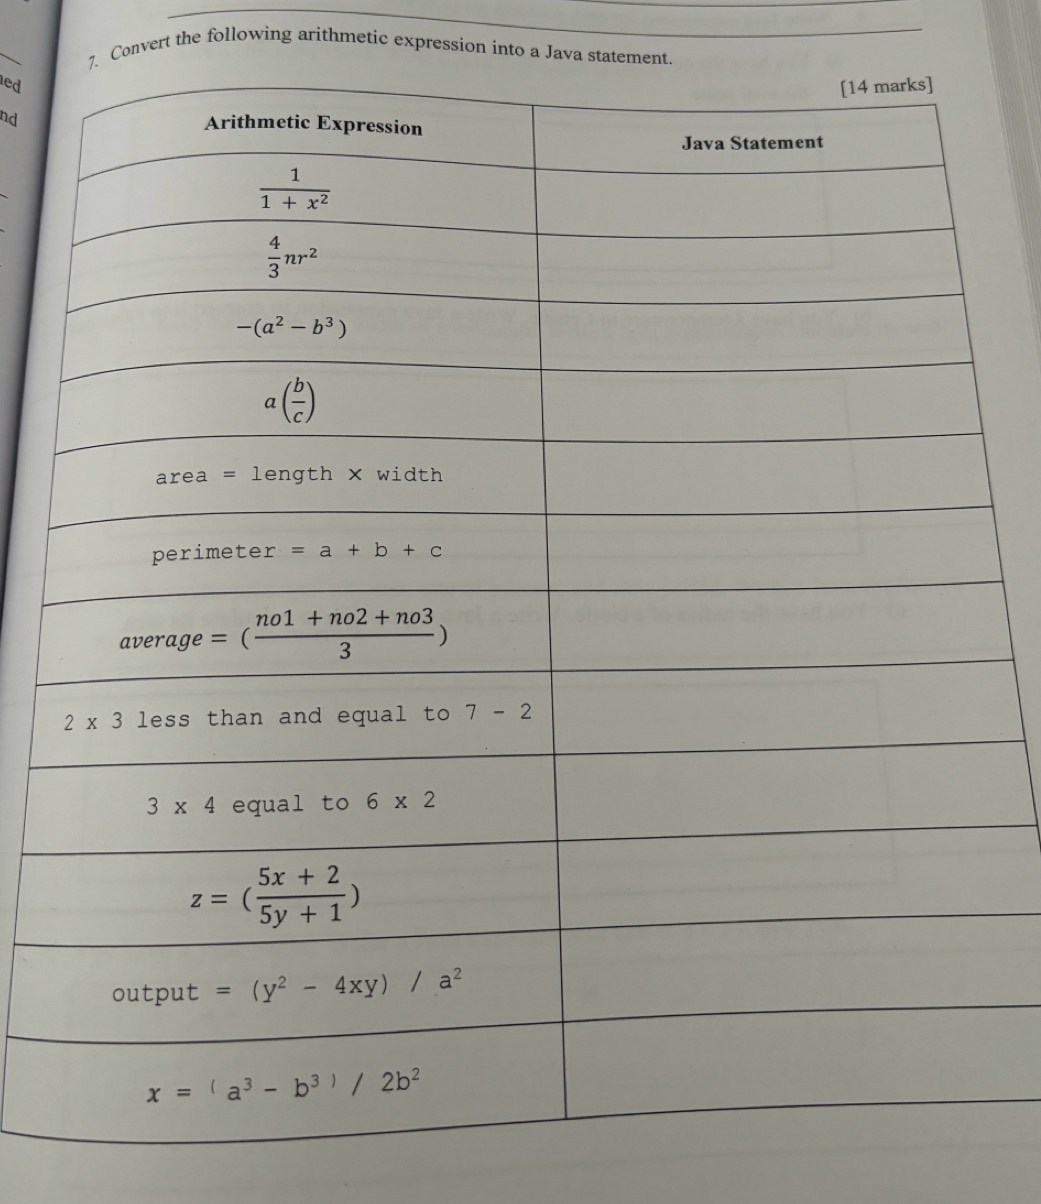 ned
nd
7. Convert the following arithmetic expression into a Java statement.
[14 marks]
Arithmetic Expression
Java Statement
1
1 + x²
4
3
nr²
−(a² − b³ )
a (b
c)
area = length × width
perimeter = a + b + c
average = ( no1 + no2 + no3
3 )
2 x 3 less than and equal to 7 - 2
3 x 4 equal to 6 x 2
z = ( 5x + 2
5y + 1 )
output = (y² - 4xy) / a²
x = ( a³ - b³ ) / 2b²